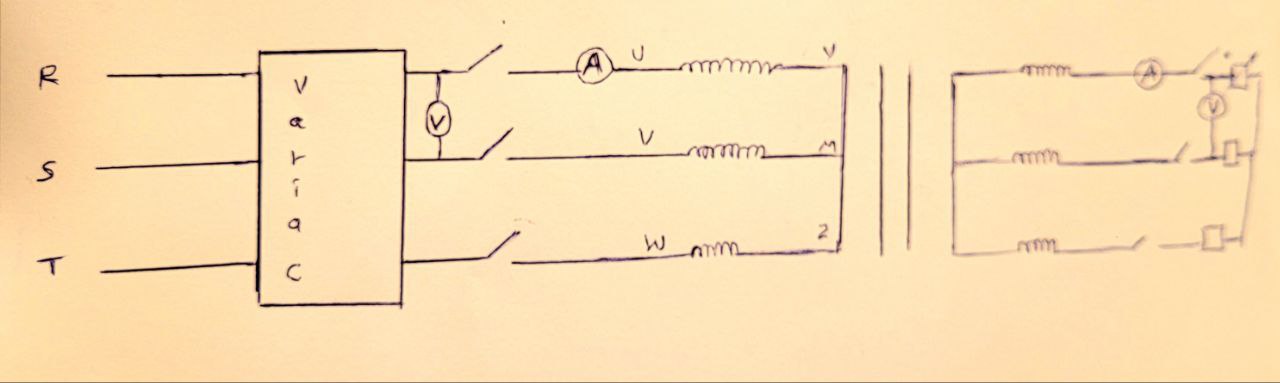 R
S
T
VariaC
V
A
U
V
V
M
W
2
A
V